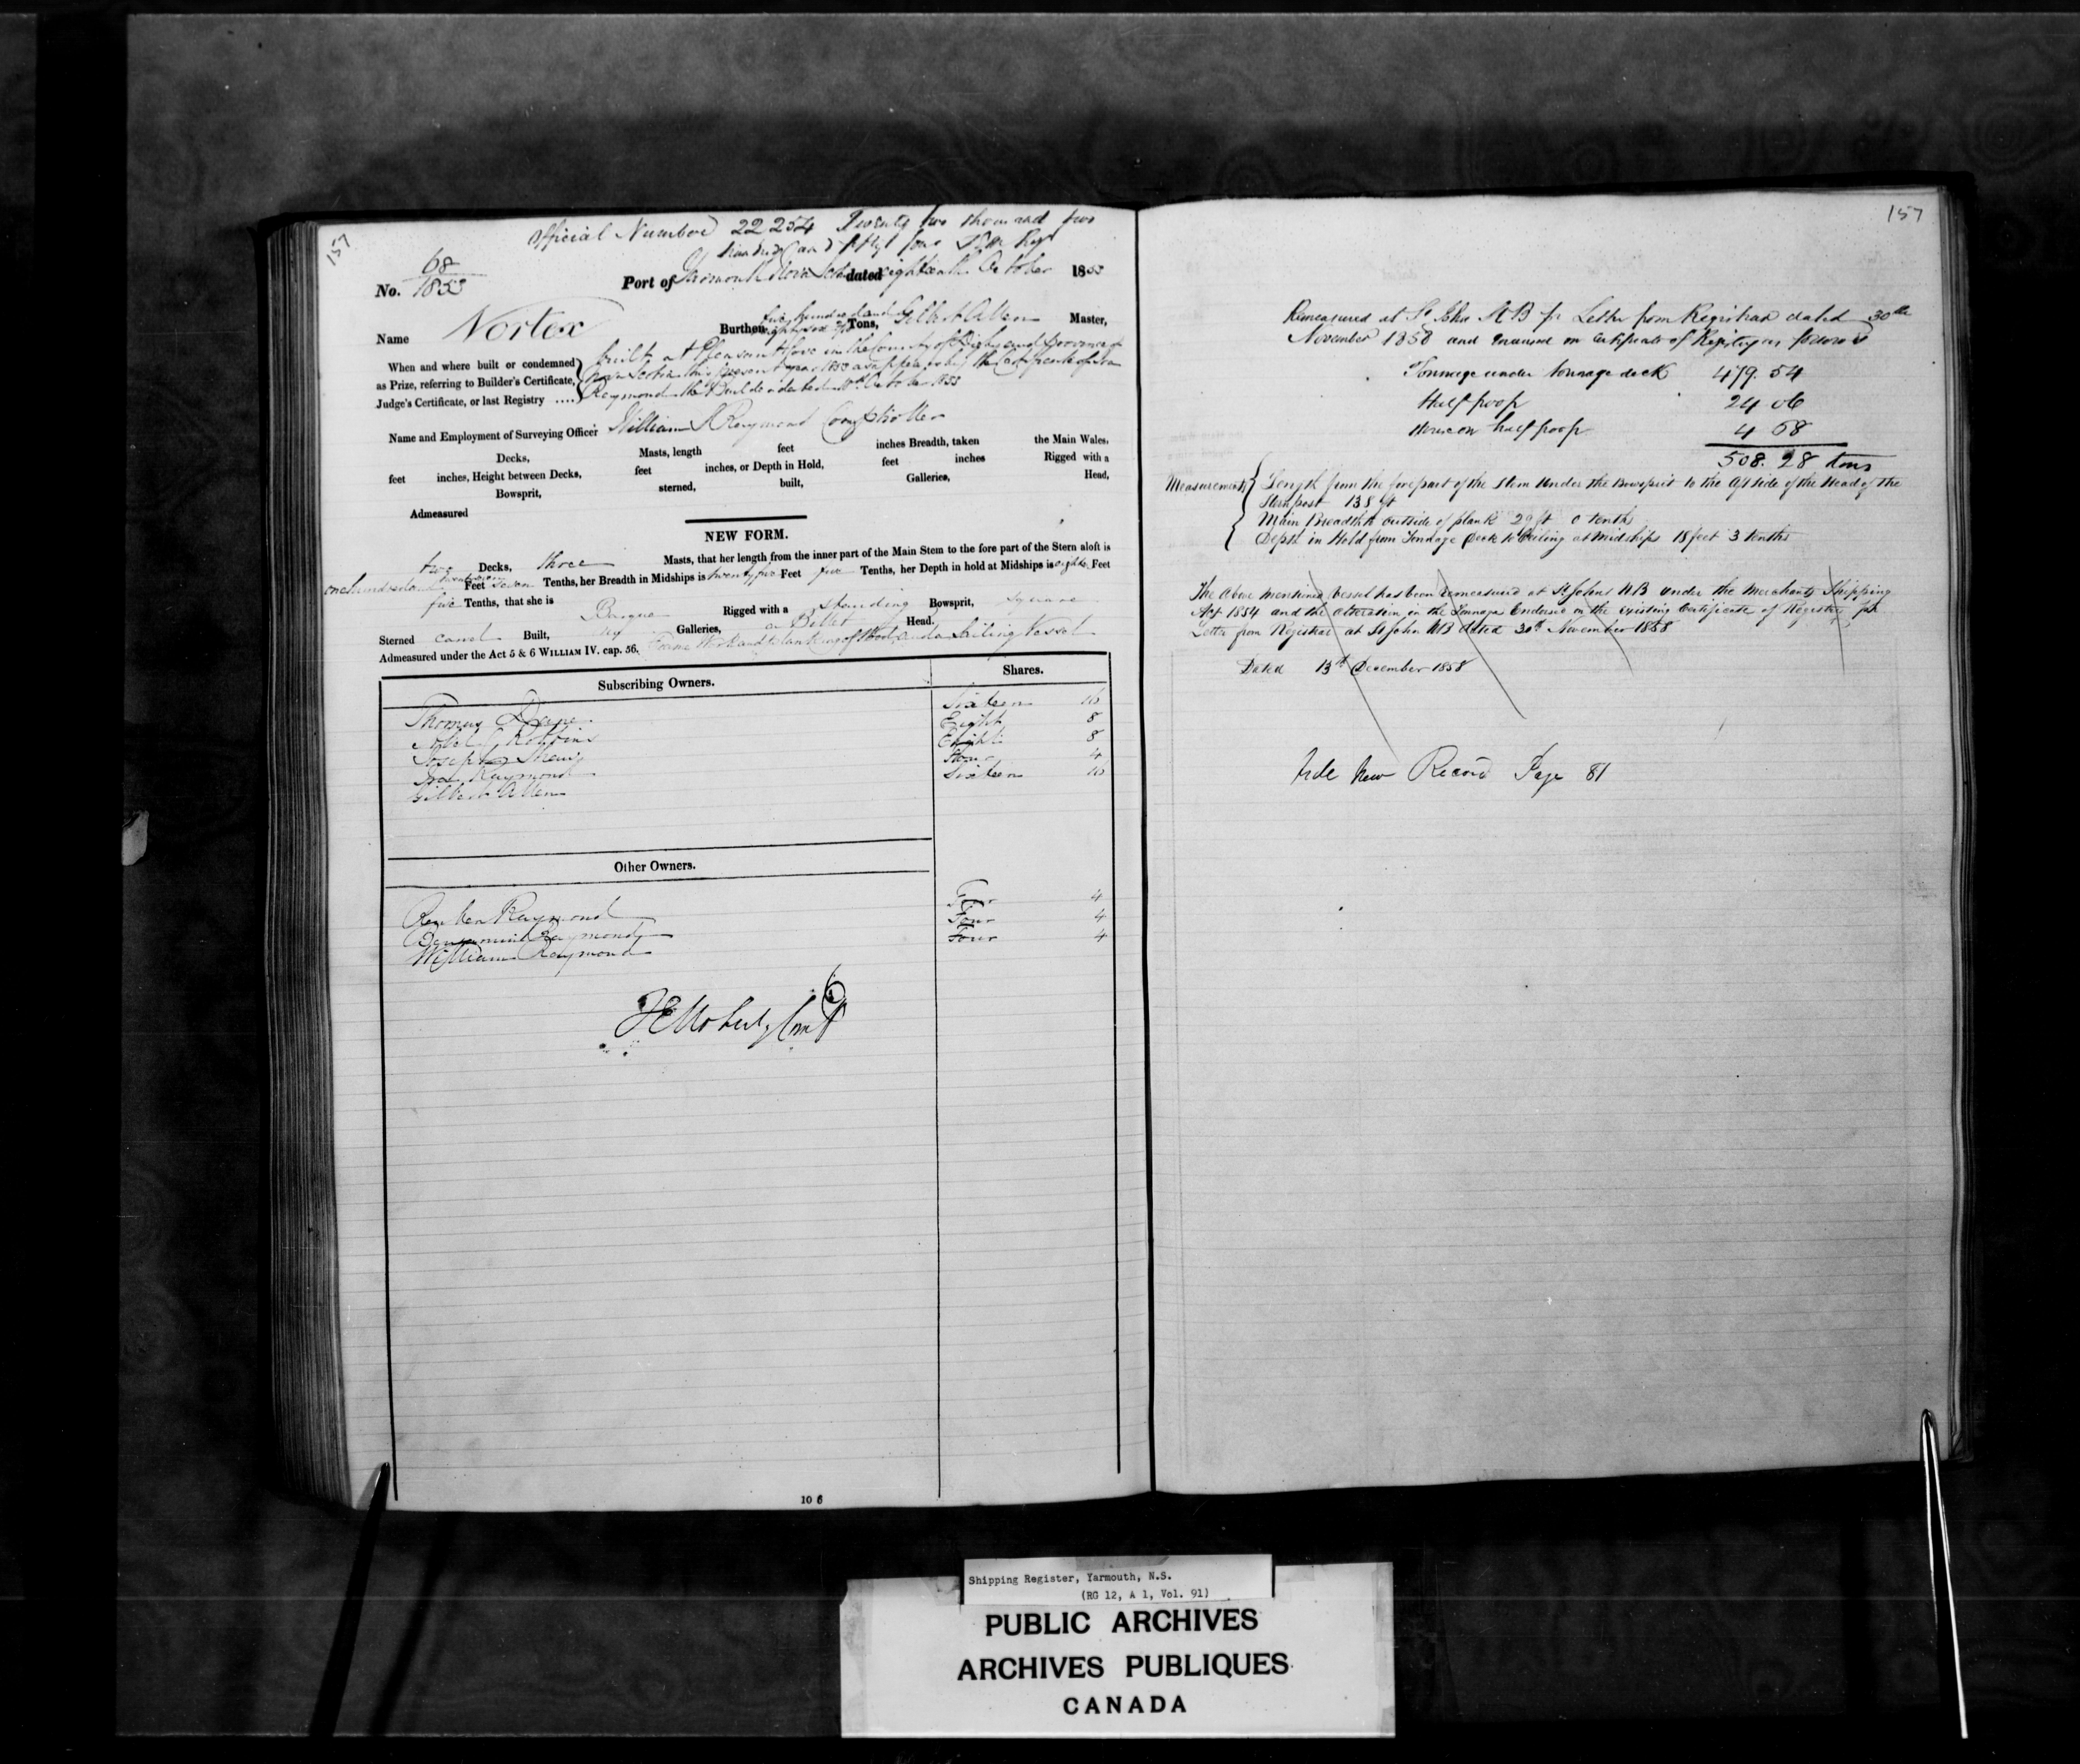 157
Official Number 22254 Twenty two thousand two
hundred and fifty four
No. 68/1853
Port of Yarmouth Nova Scotia dated eighteenth October 1853
Name Vortex Burthen five hundred and Tons, Gilbert Allen Master,
When and where built or condemned
as Prize, referring to Builder's Certificate,
Judge's Certificate, or last Registry ....
Built at Pleasant Cove in the County of Digby and Province of
Nova Scotia this present year 1853 as appears by the Certificate of Ira
Raymond the Builder dated October 1853
Name and Employment of Surveying Officer William Raymond Comptroller
Decks, Masts, length feet inches Breadth, taken the Main Wales.
feet inches, Height between Decks, feet inches, or Depth in Hold, feet inches Rigged with a
Bowsprit, sterned, built, Galleries, Head,
Admeasured
NEW FORM.
two Decks, three Masts, that her length from the inner part of the Main Stem to the fore part of the Stern aloft is
one hundred and twenty seven Feet seven Tenths, her Breadth in Midships is twenty five Feet five Tenths, her Depth in hold at Midships is eighteen Feet
five Tenths, that she is Barque Rigged with a standing Bowsprit, square
Sterned carvel Built, no Galleries, a Billet Head.
Admeasured under the Act 5 & 6 WILLIAM IV. cap. 56. Frame Work and Planking of Wood and a Sailing Vessel
Subscribing Owners. Shares.
Thomas Sixteen 16
Robbins Eight 8
Joseph Eight 8
Ira Raymond Four 4
Gilbert Allen Sixteen 16
Other Owners.
Reuben Raymond Four 4
Benjamin Raymond Four 4
William Raymond Four 4
10 6
157
Remeasured at St John NB pr Letter from Registrar dated 30th
November 1858 and on Certificate of Registry as follows
Tonnage under tonnage deck 479.54
Half poop 24 06
House on half poop 4 68
508.28 tons
Measurements
Length from the forepart of the Stem under the Bowsprit to the Aft side of the Head of the
Sternpost 138 ft
Main Breadth to outside of plank 29 ft 0 tenths
Depth in Hold from Tonnage Deck to Ceiling at Midships 18 feet 3 tenths
The above mentioned Vessel has been remeasured at St Johns NB under the Merchants Shipping
Act 1854 and the alteration in the Tonnage Endorsed on the existing Certificate of Registry, pr
Letter from Registrar at St John NB dated 30th November 1858
Dated 13th December 1858
Vide New Record Page 81
Shipping Register, Yarmouth, N.S.
(RG 12, A 1, Vol. 91)
PUBLIC ARCHIVES
ARCHIVES PUBLIQUES
CANADA